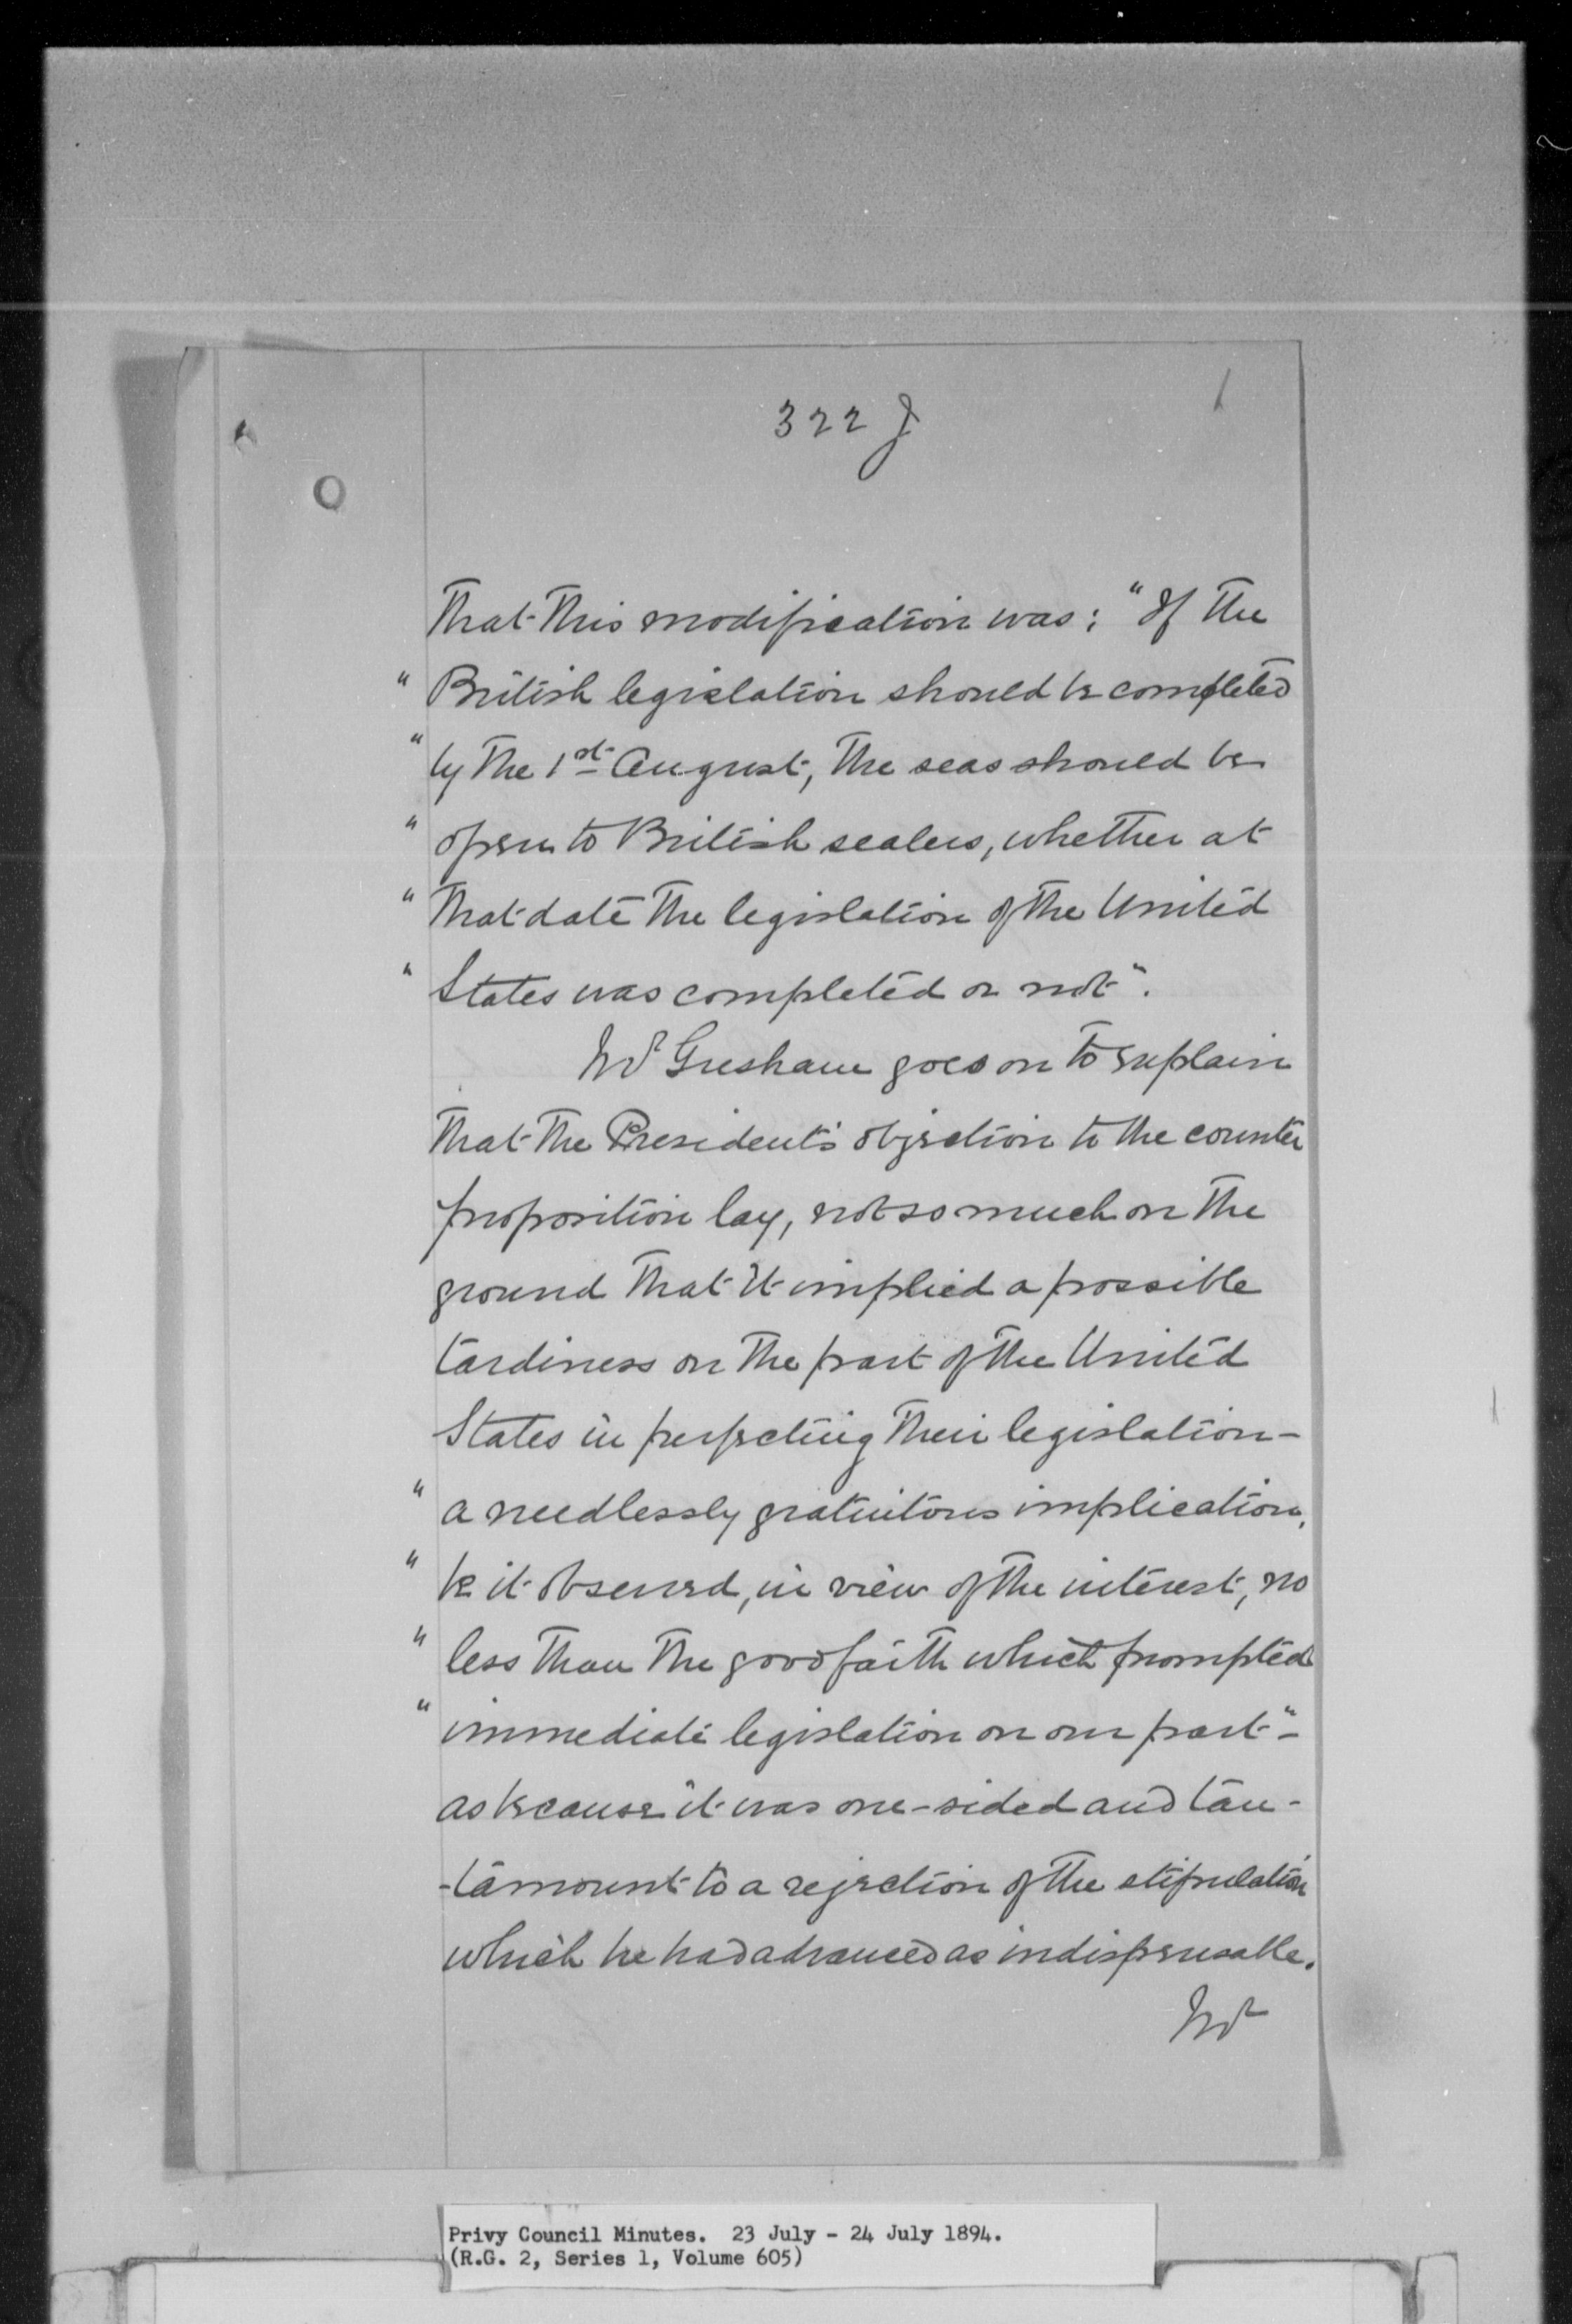 322 J
that this modification was: "If the
" British legislation should be completed
" by the 1st August, the seas should be
" open to British sealers, whether at
" that date the legislation of the United
" States was completed or not".
Mr Gresham goes on to explain
that the President's objection to the counter
proposition lay, not so much on the
ground that it implied a possible
tardiness on the part of the United
States in perfecting their legislation -
" a needlessly gratuitous implication,
" be it observed, in view of the interest, no
" less than the good faith which prompted
" immediate legislation on our part" -
as because it was one-sided and tan-
-tamount to a rejection of the stipulation
which he had advanced as indispensable.
Mr
Privy Council Minutes. 23 July - 24 July 1894.
(R.G. 2, Series 1, Volume 605)